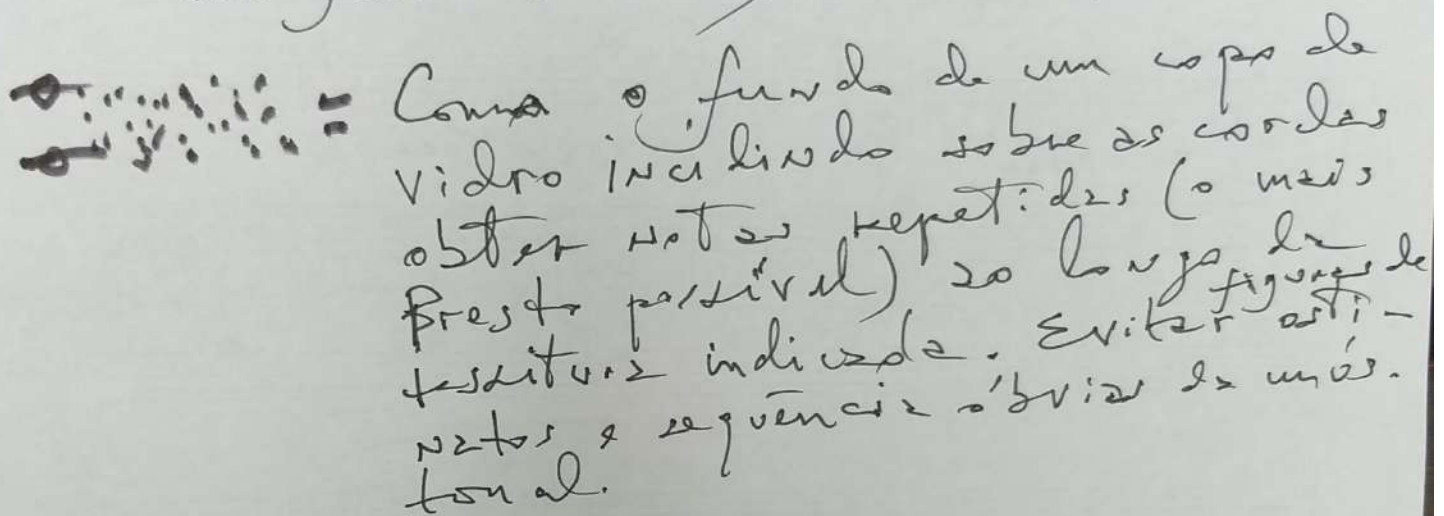 = Com o fundo de um copo de
vidro inclindo sobre as cordas
obter notas repetidas (o mais
Presto possível) ao longo da
tessitura indicada. Evitar figuras de osti-
natos e sequência óbvias da mús.
tonal.